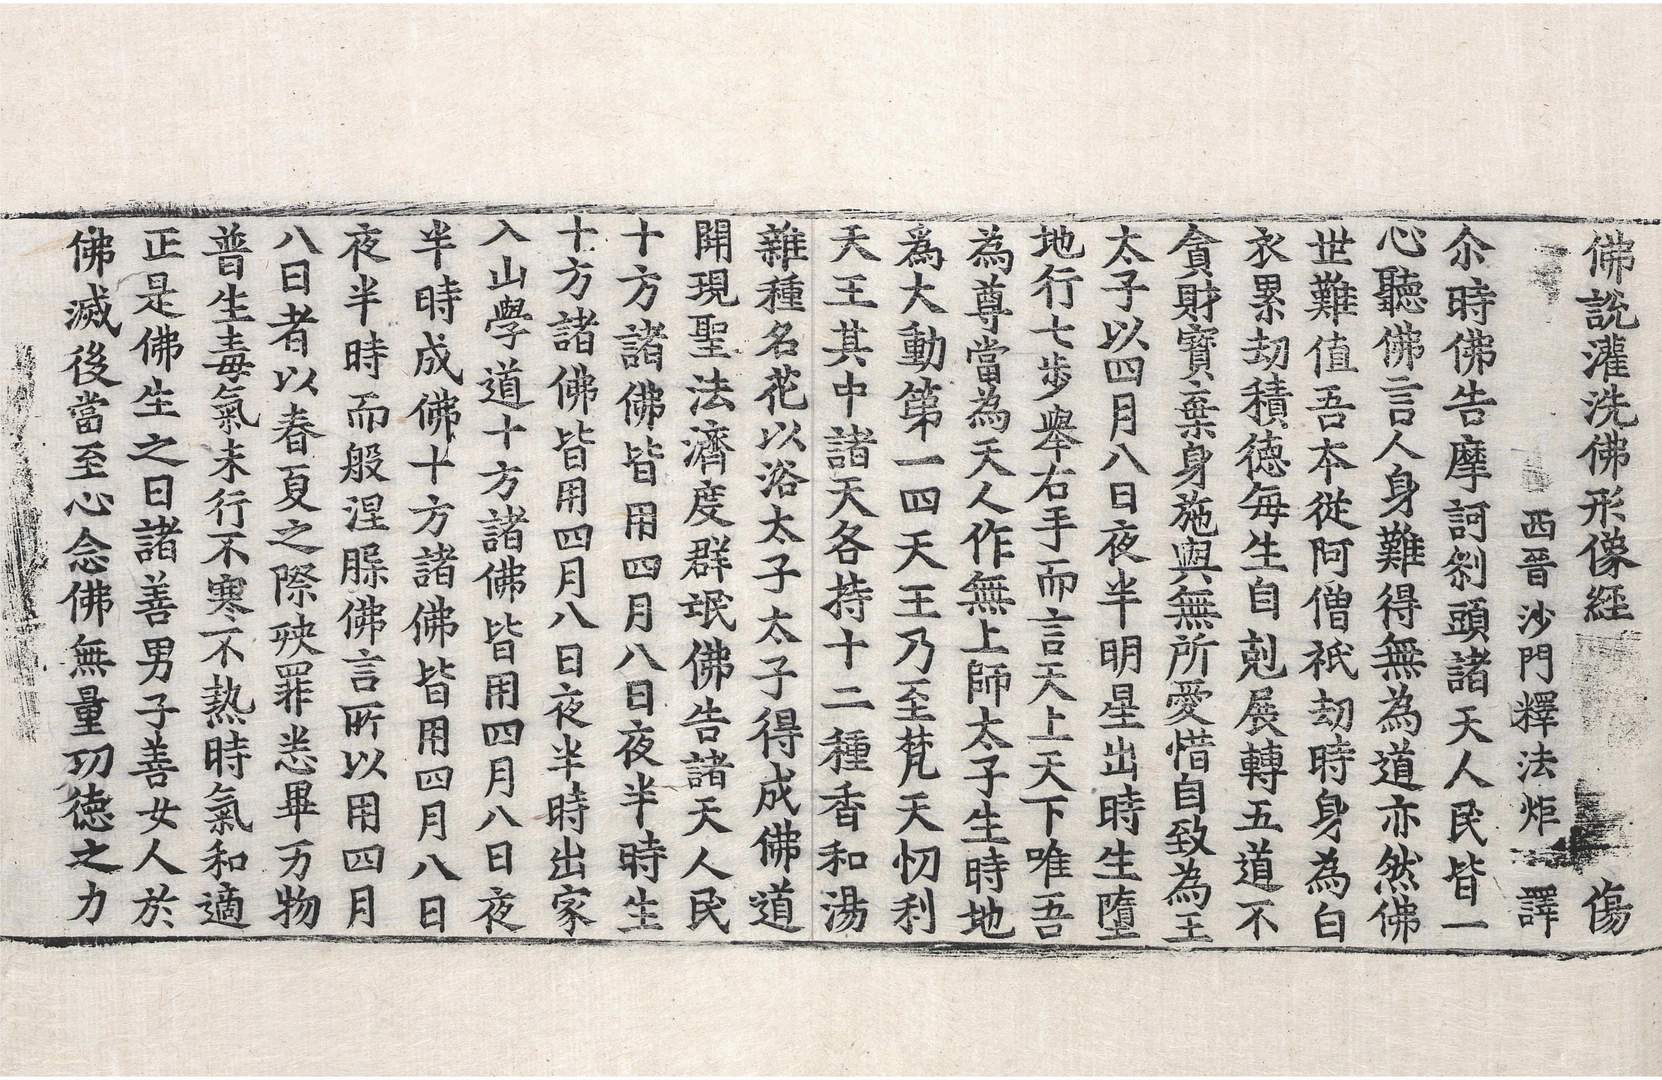 佛說灌洗佛形像經 傷
西晉沙門釋法炬 譯
尒時佛告摩訶剎頭諸天人民皆一
心聽佛言人身難得無為道亦然佛
世難值吾本從阿僧祇劫時身為白
衣累劫積德每生自剋展轉五道不
貪財寶棄身施與無所愛惜自致為王
太子以四月八日夜半明星出時生墮
地行七步舉右手而言天上天下唯吾
為尊當為天人作無上師太子生時地
為大動第一四天王乃至梵天忉利
天王其中諸天各持十二種香和湯
雜種名花以浴太子太子得成佛道
開現聖法濟度群氓佛告諸天人民
十方諸佛皆用四月八日夜半時生
十方諸佛皆用四月八日夜半時出家
入山學道十方諸佛皆用四月八日夜
半時成佛十方諸佛皆用四月八日
夜半時而般涅脲佛言所以用四月
八日者以春夏之際殃罪悉畢万物
普生毒氣未行不寒不熱時氣和適
正是佛生之日諸善男子善女人於
佛滅後當至心念佛無量功德之力